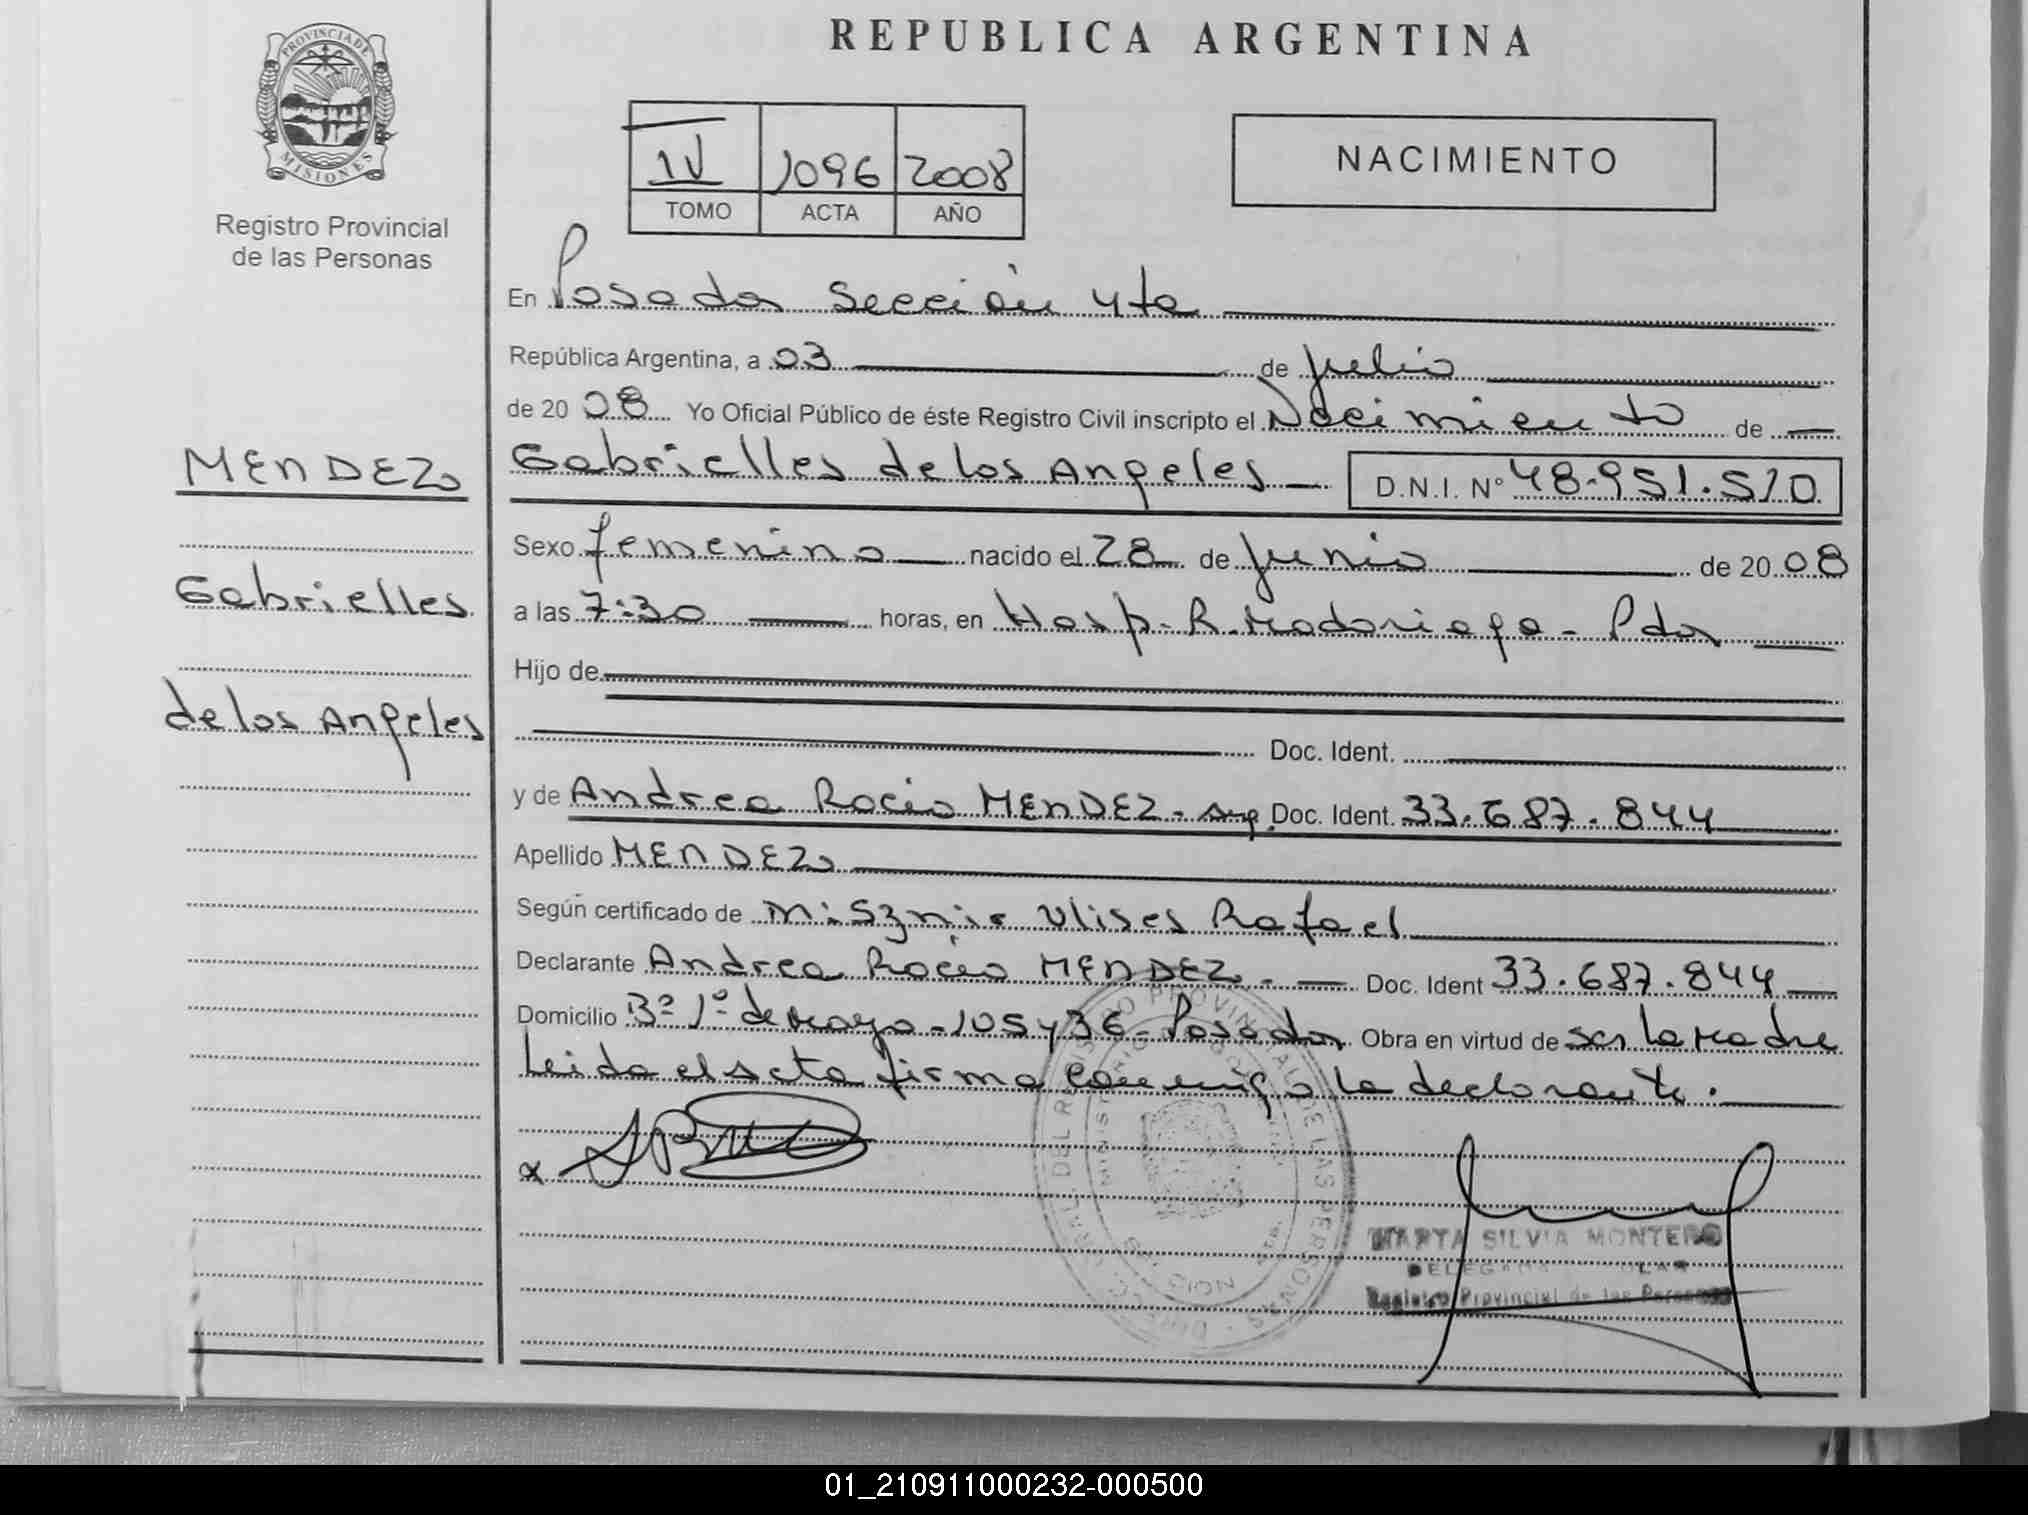 REPUBLICA ARGENTINA
PROVINCIA DE
MISIONES
Registro Provincial
de las Personas
IV 1096 2008
TOMO ACTA AÑO
NACIMIENTO
En Posadas Sección 4ta
República Argentina, a 03 de Julio
de 20 08 Yo Oficial Público de éste Registro Civil inscripto el Nacimiento de
MENDEZ
Gabrielles
de los Angeles
Gabrielles de los Angeles D.N.I. N° 48.951.510
Sexo femenino nacido el 28 de Junio de 20 08
a las 7:30 horas, en Hosp. R. Madariaga - Pdas
Hijo de
Doc. Ident.
y de Andrea Rocio MENDEZ - arg. Doc. Ident. 33.687.844
Apellido MENDEZ
Según certificado de Misznir Ulises Rafael
Declarante Andrea Rocio MENDEZ - Doc. Ident 33.687.844
Domicilio B° 1° de Mayo - 105 y 36 - Posadas Obra en virtud de ser la Madre
Leida el acta firma conmigo la declarante.
x
MARTA SILVIA MONTERO
Registro Provincial de las Personas
01_210911000232-000500